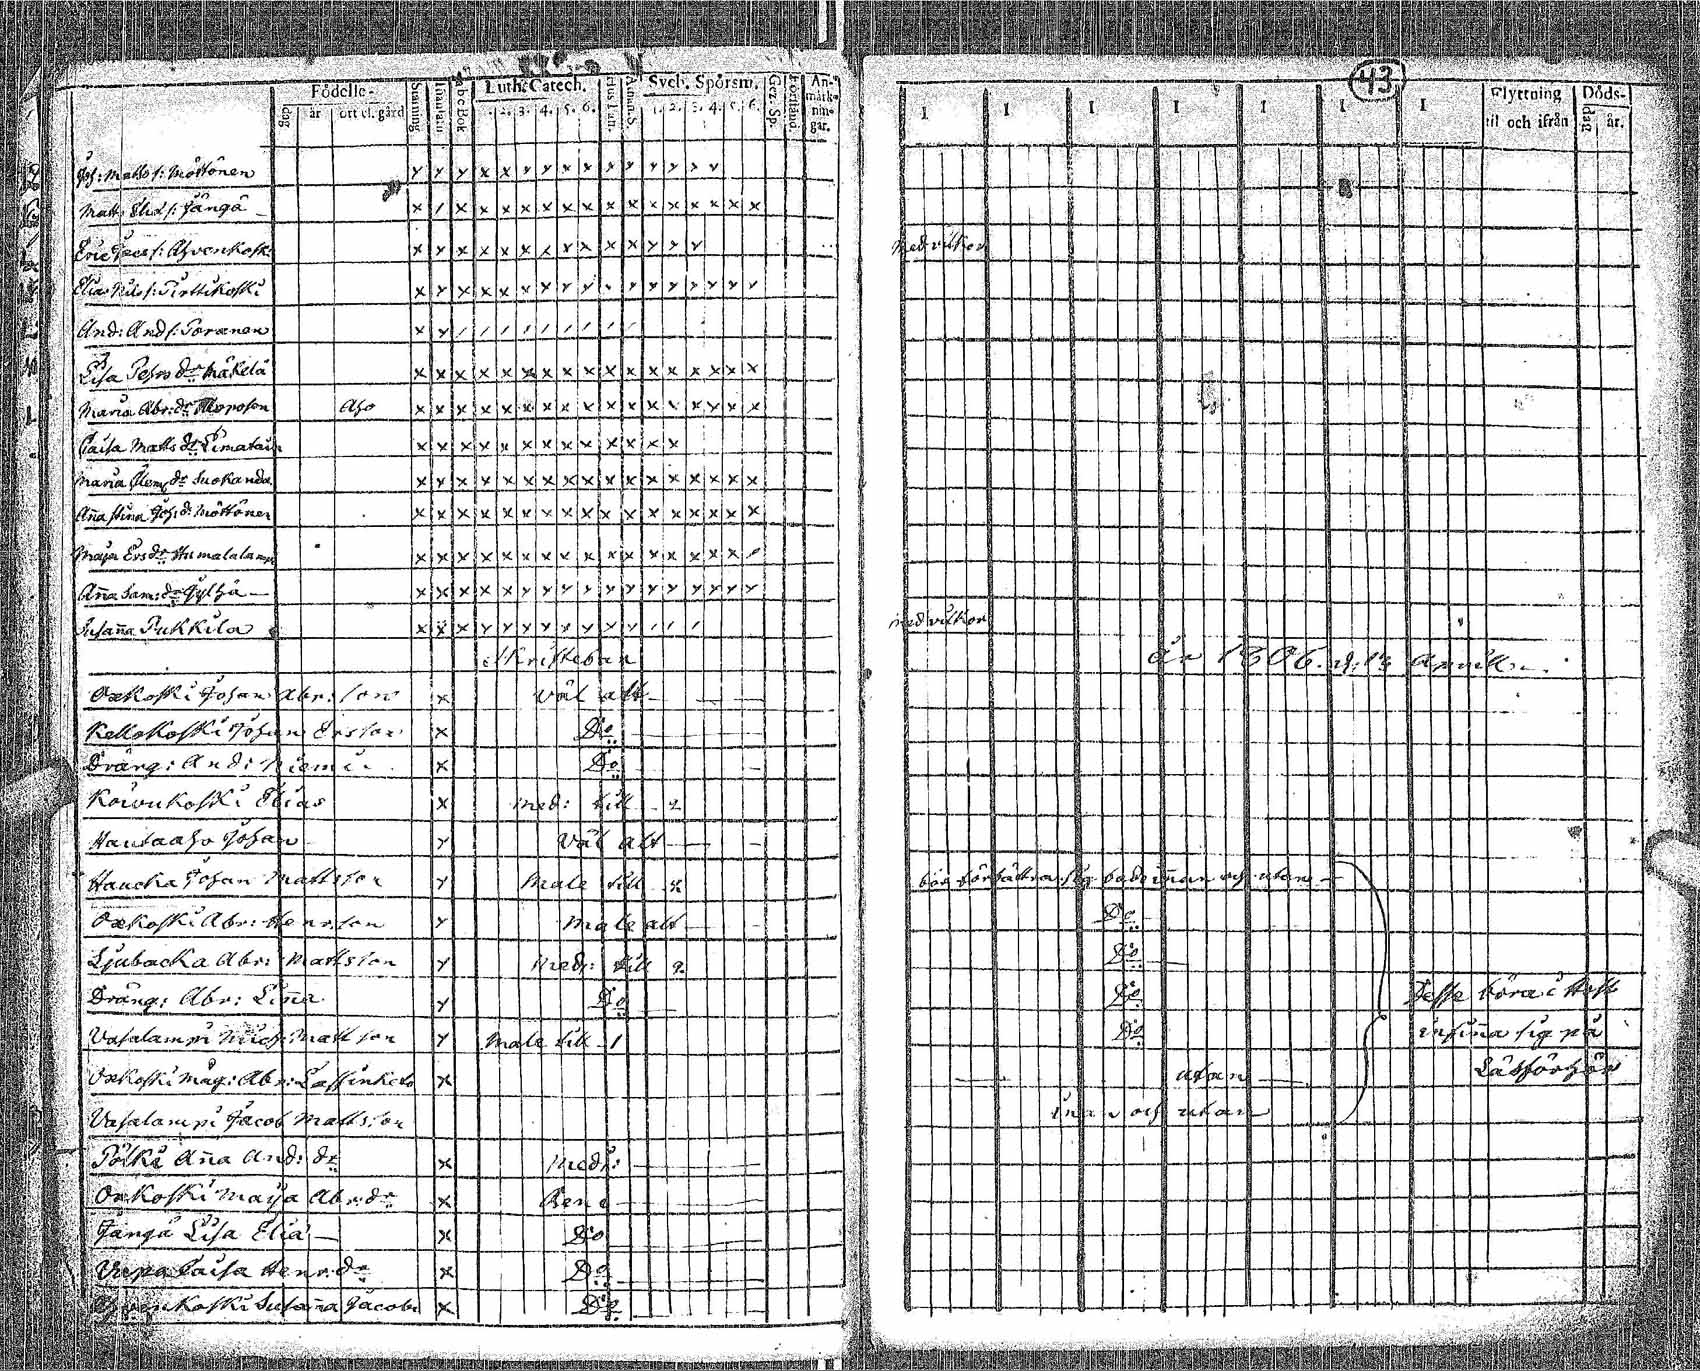 Födelse-
dag
år
ort el. gård
Stafning
Innantain
Abc Bok
Luth. Catech.
1. 2. 3. 4. 5. 6.
Hus Tafl.
Athan. S.
Sveb. Spörsm.
1. 2. 3. 4. 5. 6.
Gez. Sp.
Förstånd
An-
märk-
nin-
gar.
Joh: Matts s: Möttönen
Matts Elid s: Jängä
Eric Jacs s: Ahvenkoski
Elias Nils s: Pirttikoski
And: And s: Poranen
Lisa Pehrs dr Mäkelä
Maria Abr: dr
Aho
Caisa Matts dr
Maria Clem dr Suokanda
Aña Stina Joh: dr Möttönen
Maja Ers dr Humalalampi
Aña Sam: dr Jylhä
Susaña Pukkila
Skriftebarn
Oxkoski Johan Abr: son
väl alt
Kellokoski Johan Ersson
Do
Dräng: And: Niemi
Do
Koivukoski Elias
med: till 2
Hautaaho Johan
väl alt
Haucka Johan Mattsson
Male till 4
Oxkoski Abr: Henrson
Male alt
Ljubacka Abr: Mattsson
Med: till 2
Dräng: Abr: Liña
Do
Vasalampi Mich: Mattsson
Male till 1
Oxkoski Måg: Abr:
Vasalampi Jacob Mattsson
Pölki Aña And: dr
Med:
Oxkoski Maija Abr: dr
Do
Jängä Lisa Elia
Do
Caisa Henr: dr
Do
Ahvenkoski Susaña Jacobs
Do
43
1 1 1 1 1 1 1
Flyttning
til och ifrån
Döds-
dag
år.
Med vilkor
med vilkor
år 1806. d: 13 Aprill
bör förbättra sig både iñan och utan
Do
Do
Do
Do
utan
iñan och utan
Desse böra i Höst
infiña sig på
Läsförhör